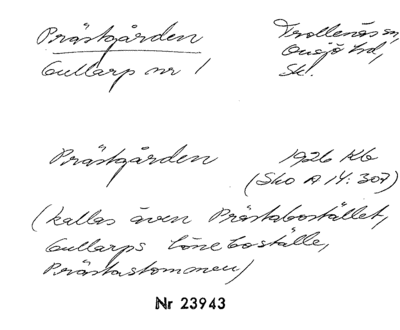 Prästgården
Gullarp nr 1
Trollenäs sn,
Onsjö hd,
Sk.
Prästgården
1926 Kb
(Sko A 14:307)
(kallas även Prästabostället,
Gullarps löneboställe,
Prästastommen)
Nr 23943